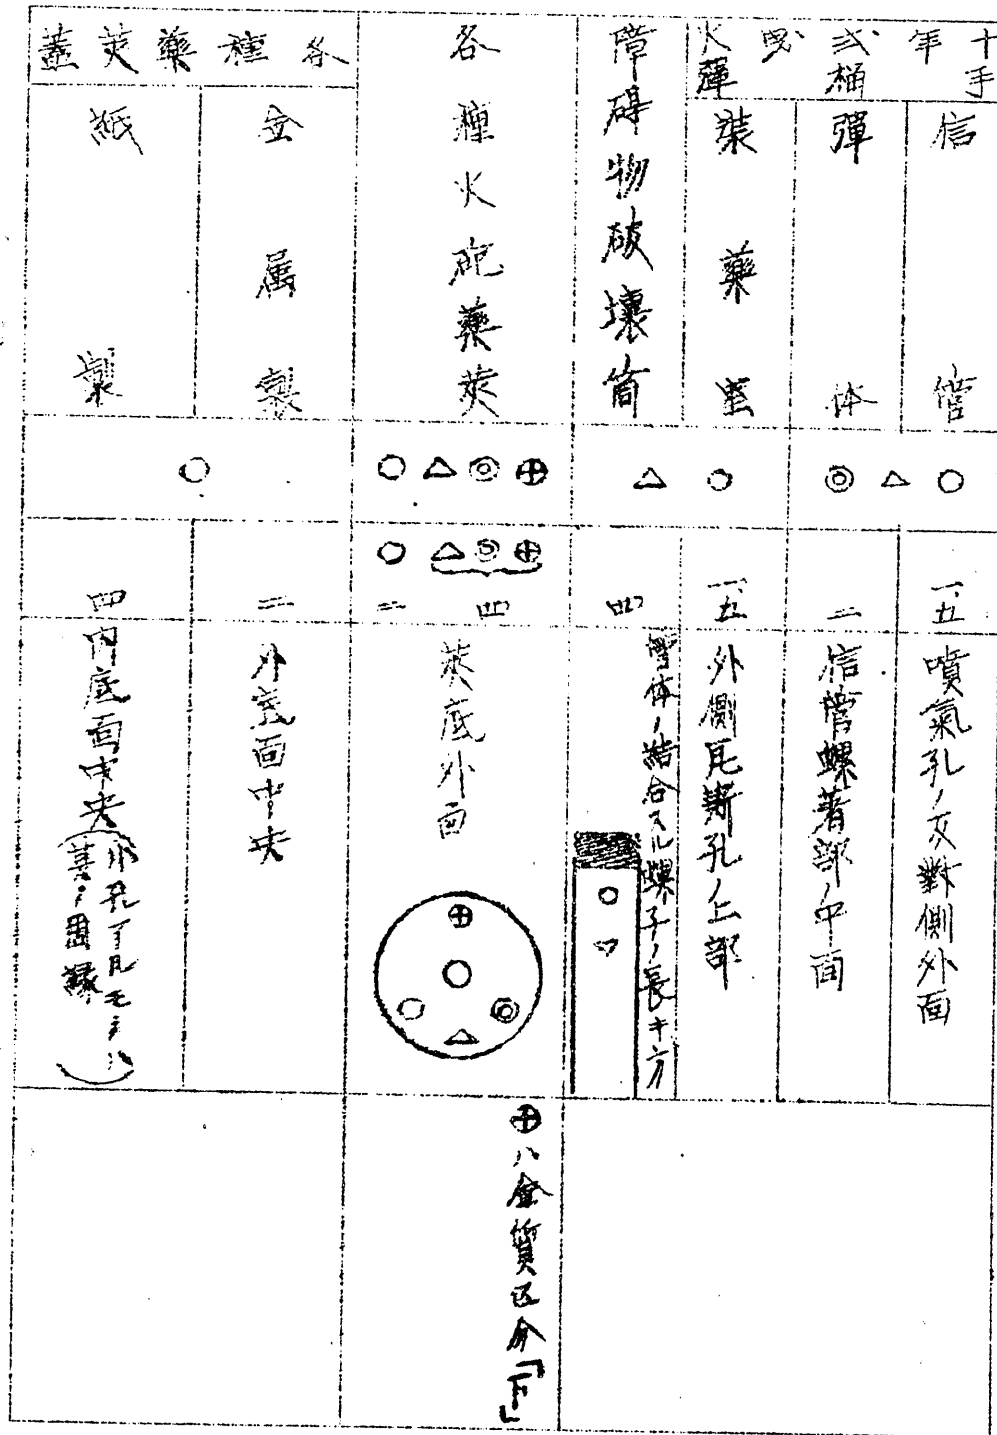 十年式手榴弾曳火
信管
○
一、五
噴氣孔ノ反對側外面
彈体
△
◎
二
信管螺着部ノ平面
裝藥室
○
一、五
外側瓦斯孔ノ上部
障碍物破壞筒
△
四
管体ノ結合スル螺子ノ長キ方
各種火砲藥莢
⊕◎△○
⊕◎△ 四
○ 二
莢底外面
⊕ハ金質区分「下」
各種藥莢蓋
金属製
○
二
外底面中央
紙製
四
內底面中央(小孔アルモノハ
蓋ノ周緣)